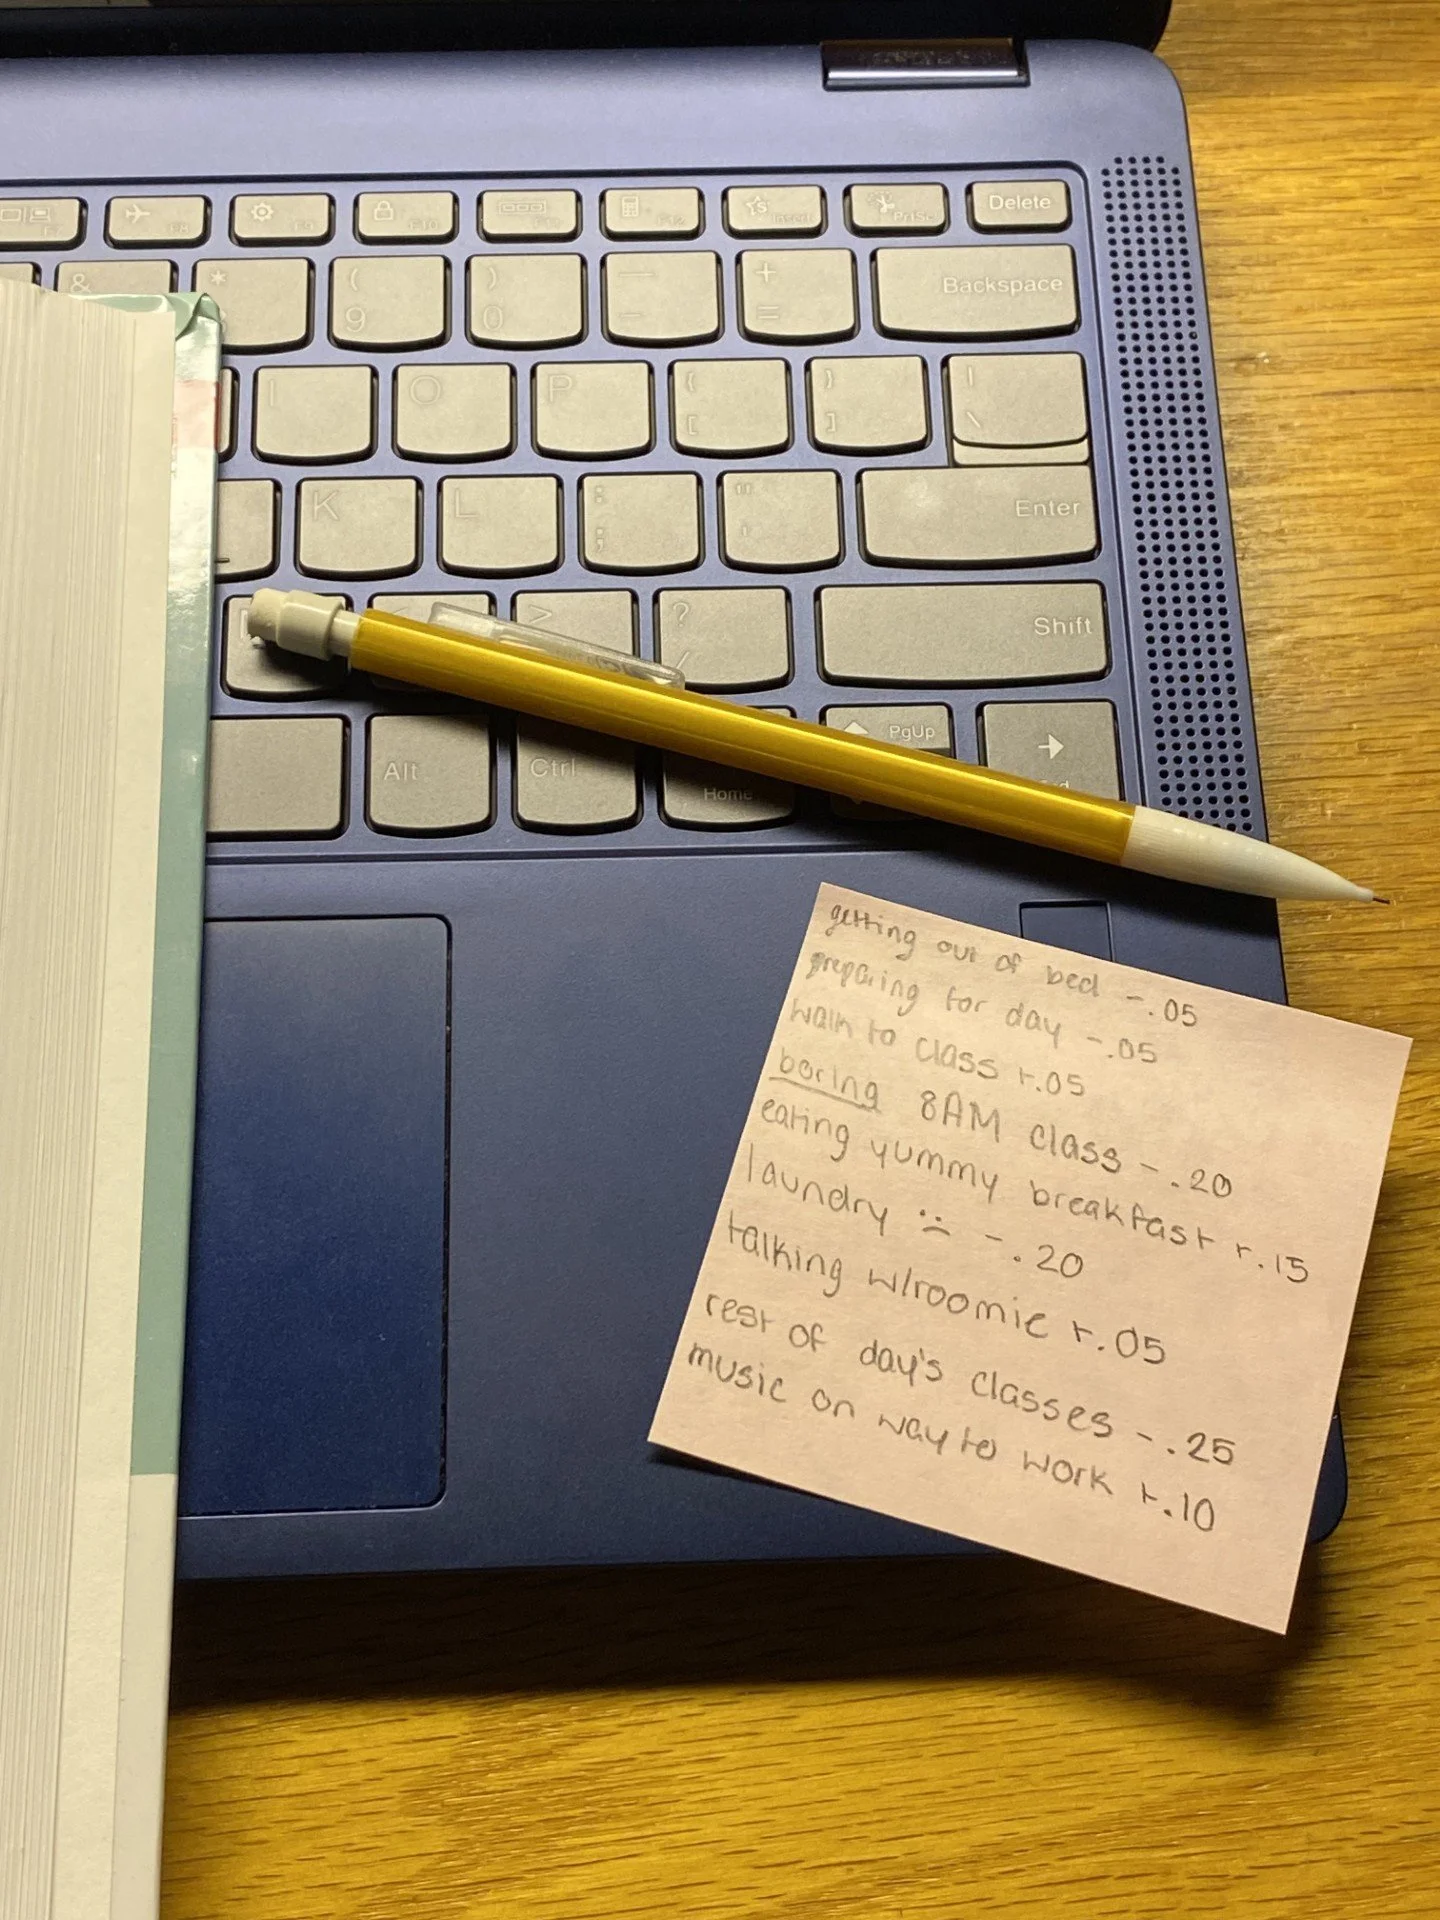 F7
F8
F9
F10
F12
Insert
PrtSc
Delete
&
*
( 9
) 0
— -
+ =
Backspace
I
O
P
{ [
} ]
| \
K
L
: ;
" '
Enter
>
? /
Shift
Alt
Ctrl
Home
PgUp
→
getting out of bed -.05
preparing for day -.05
walk to class +.05
boring 8AM class -.20
eating yummy breakfast +.15
laundry :( -.20
talking w/roomie +.05
rest of day's classes -.25
music on way to work +.10